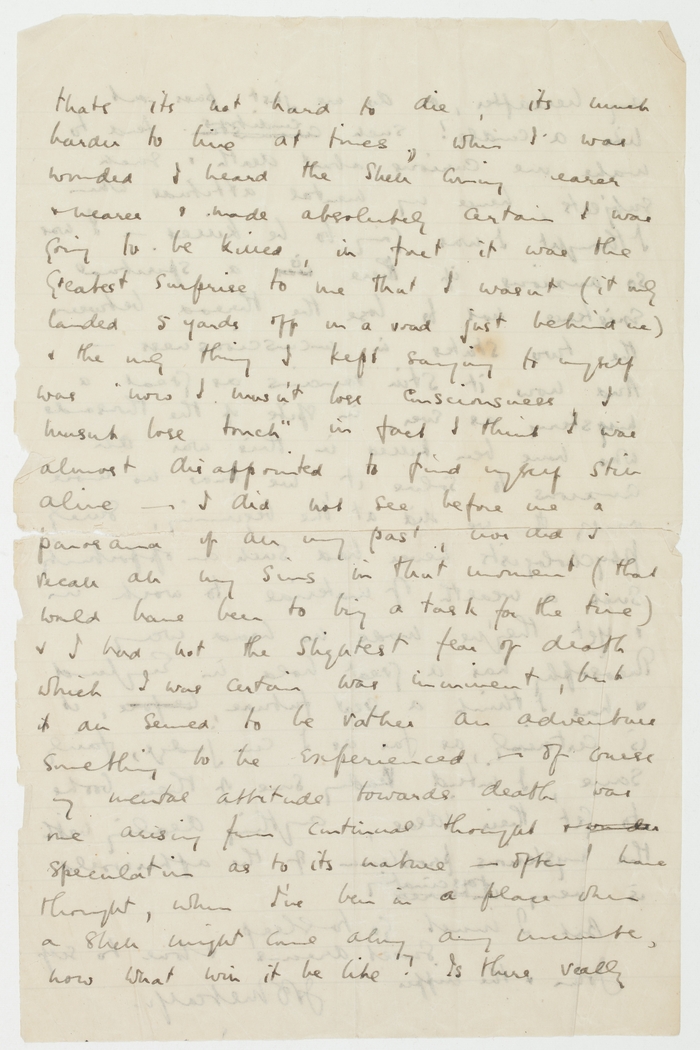 thats its not hard to die, its much
harder to live at times, when I was
wounded I heard the shell coming earer
& nearer & made absolutely certain I was
going to be killed, in fact it was the
greatest surprise to me that I wasn't (it only
landed 5 yards off in a road just behind me)
& the only thing I kept saying to myself
was "now I musn't lose consciousness I
musnt lose touch" in fact I think I was
almost disappointed to find myself still
alive — I did not see before me a
panorama of all my past, nor did I
recall all my sins in that moment (that
would have been to big a task for the time)
& I had not the slightest fear of death
which I was certain was imminent, but
it all seemed to be rather an adventure
something to be experienced — of course
my mental attitude towards death was
one arising from continual thought &
speculation as to its nature — often I have
thought, when I've been in a place when
a shell might come along any minute,
now what will it be like? Is there really